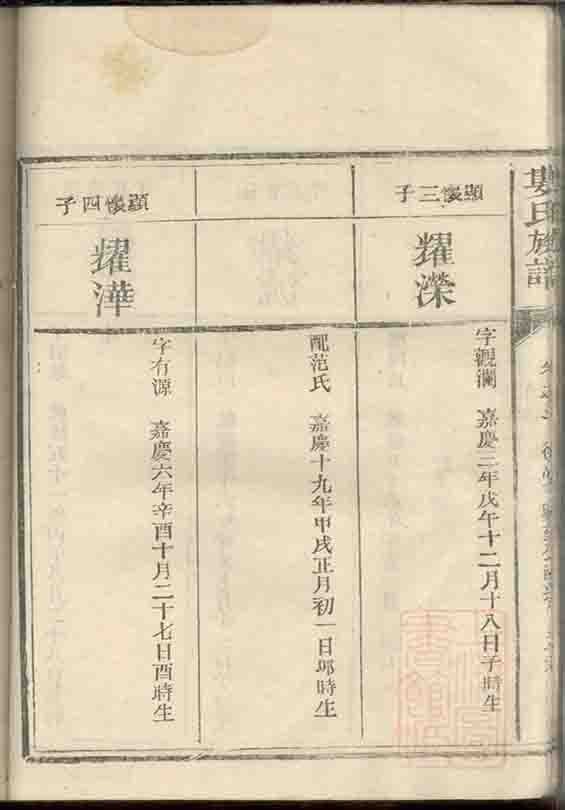 氏族譜
顯懷三子
耀濚
字觀瀾　嘉慶三年戊午十二月十八日子時生
配范氏　嘉慶十九年甲戌正月初一日邜時生
顯懷四子
耀澕
字有源　嘉慶六年辛酉十月二十七日酉時生